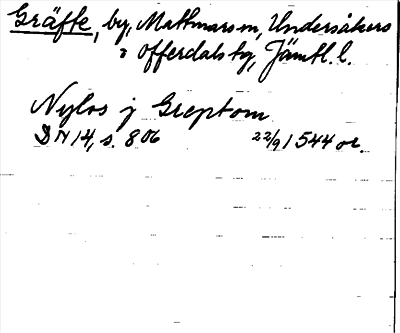 Gräfte, by, Mattmars sn, Undersåkers
o Offerdals tg, Jämtl. l.
Nylos j Greptom
DN 14, s. 806 22/9 1544 or.